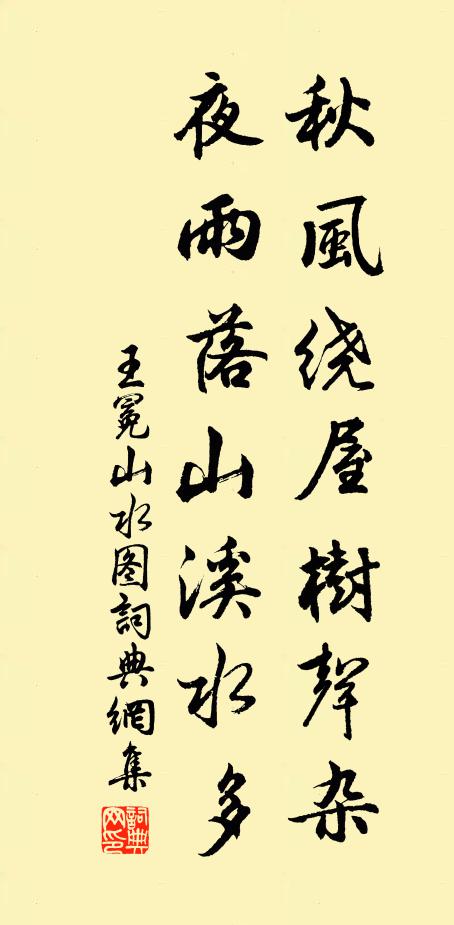 秋風绕屋樹聲杂
夜雨落山溪水多
王冕山水图詞典網集
詞典网印